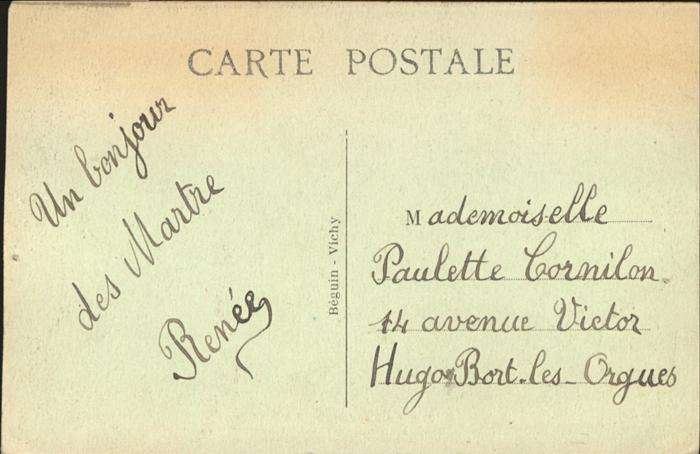 CARTE POSTALE
Un bonjour
des Martre
Renée
Béguin - Vichy
Mademoiselle
Paulette Cornilon.
14 avenue Victor
Hugo Bort-les-Orgues